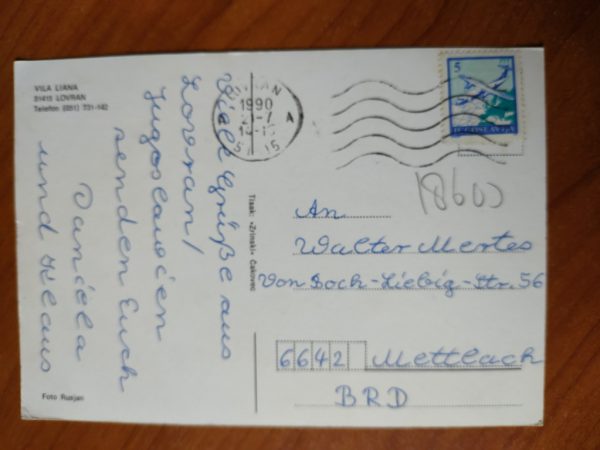 VILA LIANA
51415 LOVRAN
Telefon (051) 731-142
Viele Grüße aus
Lovran/
Jugoslawien
senden Euch
Daniela
und Klaus
Foto Rusjan
Tisak: »Zrinski« Čakovec
1990
A
5
JUGOSLAVIJA
An
Walter Mertes
Von Boch-Liebig-Str. 56
6642 Mettlach
BRD